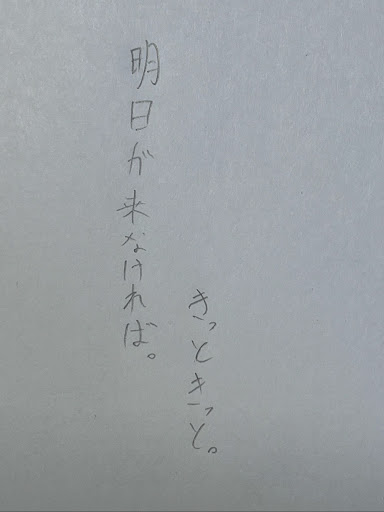 きっときっと。
明日が来なければ。